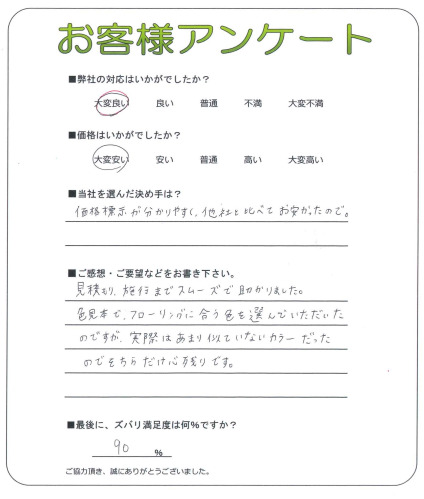 お客様アンケート
■弊社の対応はいかがでしたか？
大変良い 良い 普通 不満 大変不満
■価格はいかがでしたか？
大変安い 安い 普通 高い 大変高い
■当社を選んだ決め手は？
価格標示が分かりやすく、他社と比べてお安かったので。
■ご感想・ご要望などをお書き下さい。
見積もり、施行までスムーズで助かりました。
色見本で、フローリングに合う色を選んでいただいた
のですが、実際はあまり似ていないカラーだった
のでそちらだけ心残りです。
■最後に、ズバリ満足度は何％ですか？
90 ％
ご協力頂き、誠にありがとうございました。